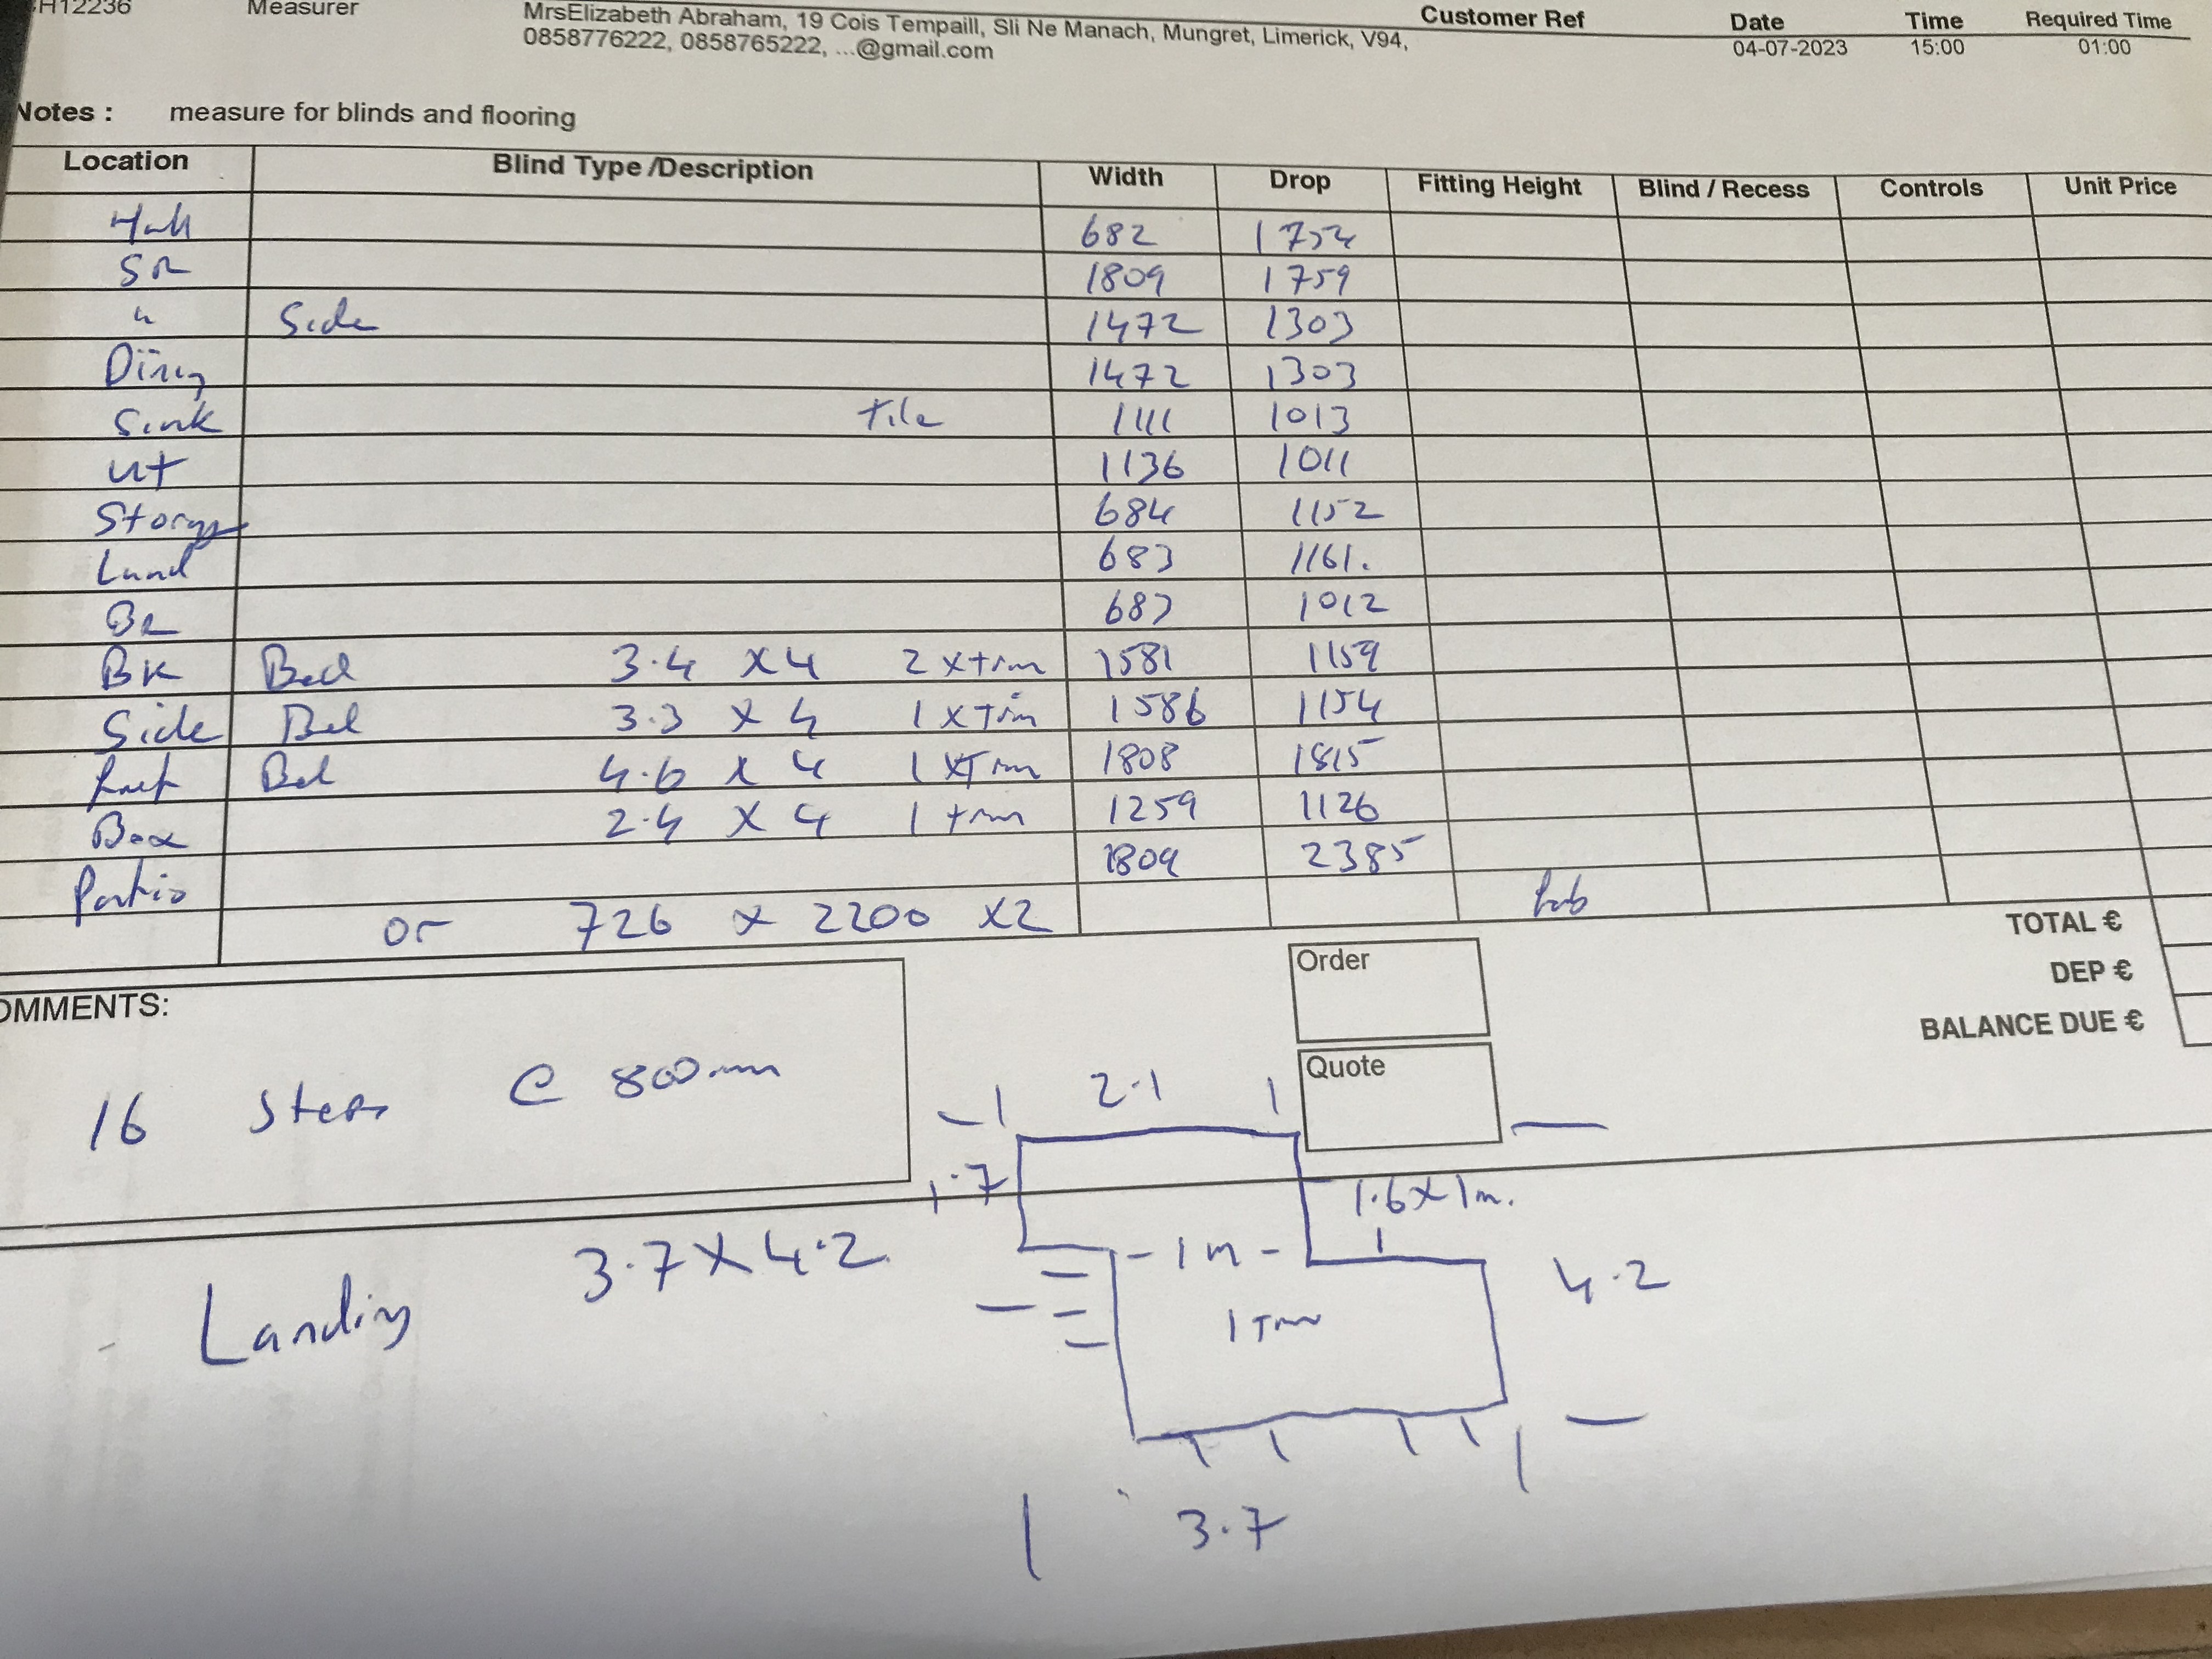 H12236 Measurer MrsElizabeth Abraham, 19 Cois Tempaill, Sli Ne Manach, Mungret, Limerick, V94, Customer Ref Date Time Required Time
0858776222, 0858765222, ...@gmail.com 04-07-2023 15:00 01:00
Notes : measure for blinds and flooring
Location Blind Type /Description Width Drop Fitting Height Blind / Recess Controls Unit Price
Hall 682 1754
SR 1809 1759
" Side 1472 1303
Dining 1472 1303
Sink Tile 1111 1013
Ut 1136 1011
Storage 684 1152
Land 683 1161.
BR 1012
BK Bed 3.4 X 4 2 x trim 1581 1159
Side Bed 3.3 X 4 1 x Trim 1586 1154
Bed 4.6 x 4 1 x Trim 1808 1815
Box 2.4 X 4 1 trim 1259 1126
Patio 1809 2385
or 726 x 2200 x2
TOTAL €
DEP €
BALANCE DUE €
Order
Quote
OMMENTS:
16 Steps @ 800mm
2.1
1.7
1.6 X 1m.
- 1m -
Landing 3.7 X 4.2
4.2
1 Trim
3.7